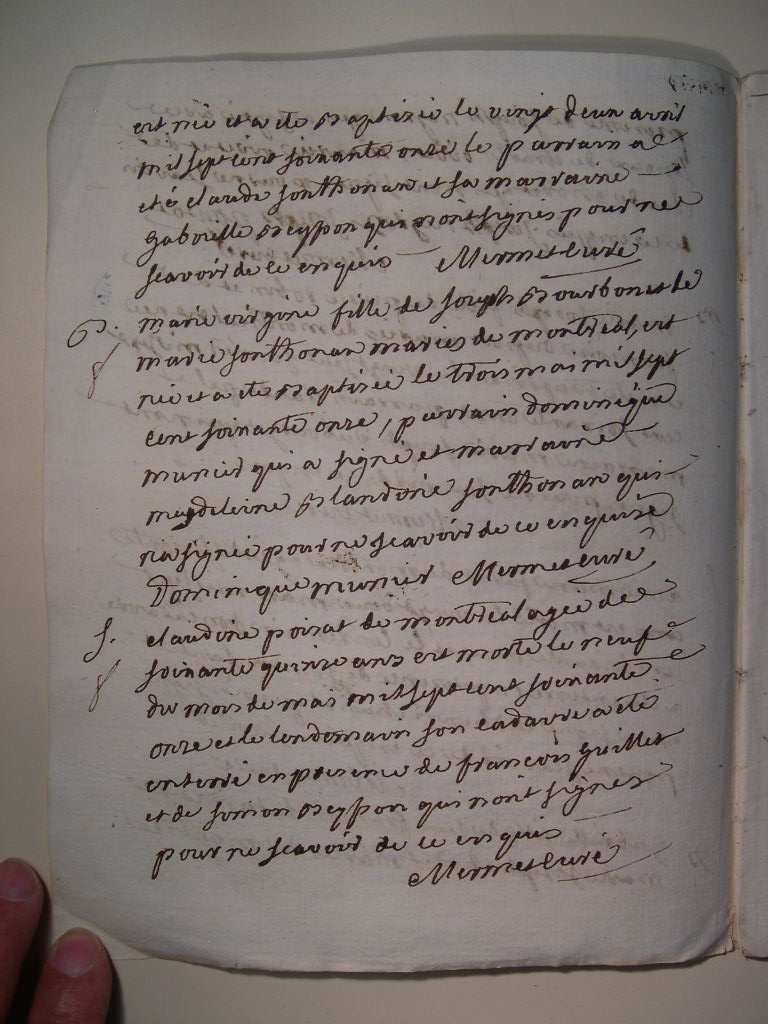 est née et a ete Baptisée le vingt deux avril
mil sept cent soixante onze le parrain a
eté claude sonthonax et sa marraine
Gabrielle Beysson qui nont signés pour ne
scavoir de ce enquis Mermet curé
B. marie virgine fille de joseph Bourbon et de
marie sonthonax mariés de montreal, est
née et a ete Baptisée le trois mai mil sept
cent soixante onze, parrain dominique
munier qui a signé et marraine
magdeleine Blandine sonthonax qui
na signée pour ne scavoir de ce enquise
Dominique munier Mermet curé
S. claudine poisat de montreal agée de
soixante quinze ans est morte le neuf
du mois de mai mil sept cent soixante
onze et le lendemain son cadavre a ete
enterré en presence de francois guillet
et de simon Beysson qui nont signes
pour ne scavoir de ce enquis
Mermet curé